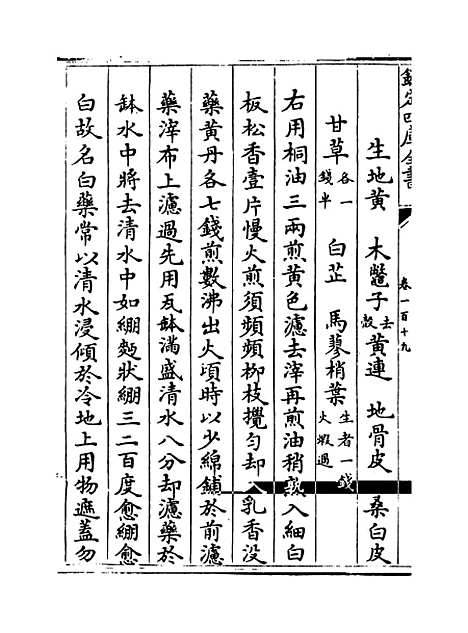 欽定四庫全書
卷一百十九
生地黄 木鼈子去殼 黄連 地骨皮 桑白皮
甘草各一錢半 白芷 馬蓼梢葉生者一錢火煅過
右用桐油三兩煎黄色濾去滓再煎油稍熟入細白
板松香壹片慢火煎須頻頻柳枝攪勻却入乳香没
藥黄丹各七錢煎數沸出火頃時以少綿鋪於前濾
藥滓布上濾過先用瓦鉢滿盛清水八分却濾藥於
鉢水中將去清水中如綳麪狀綳三二百度愈綳愈
白故名白藥常以清水浸傾於冷地上用物遮蓋勿